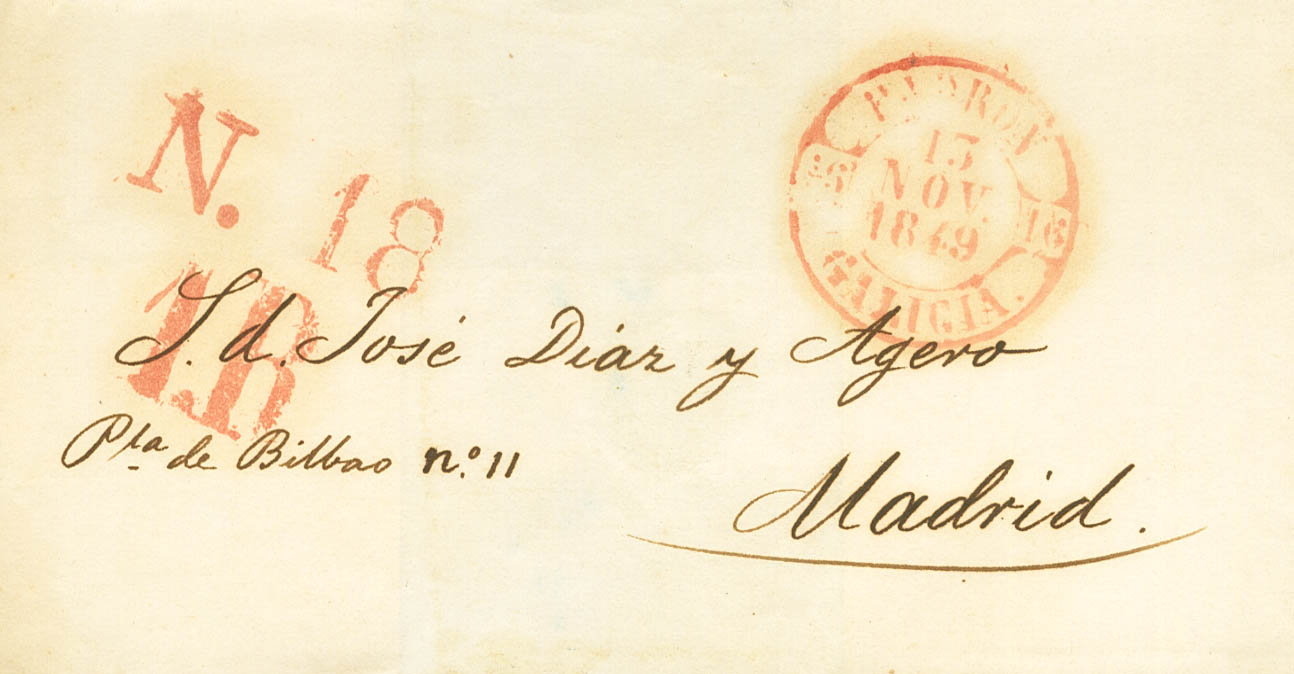 N. 18
1R
PADRON
13
NOV.
1849
16 16
GALICIA.
S. d. José Díaz y Agero
Pta de Bilbao n.º 11
Madrid.